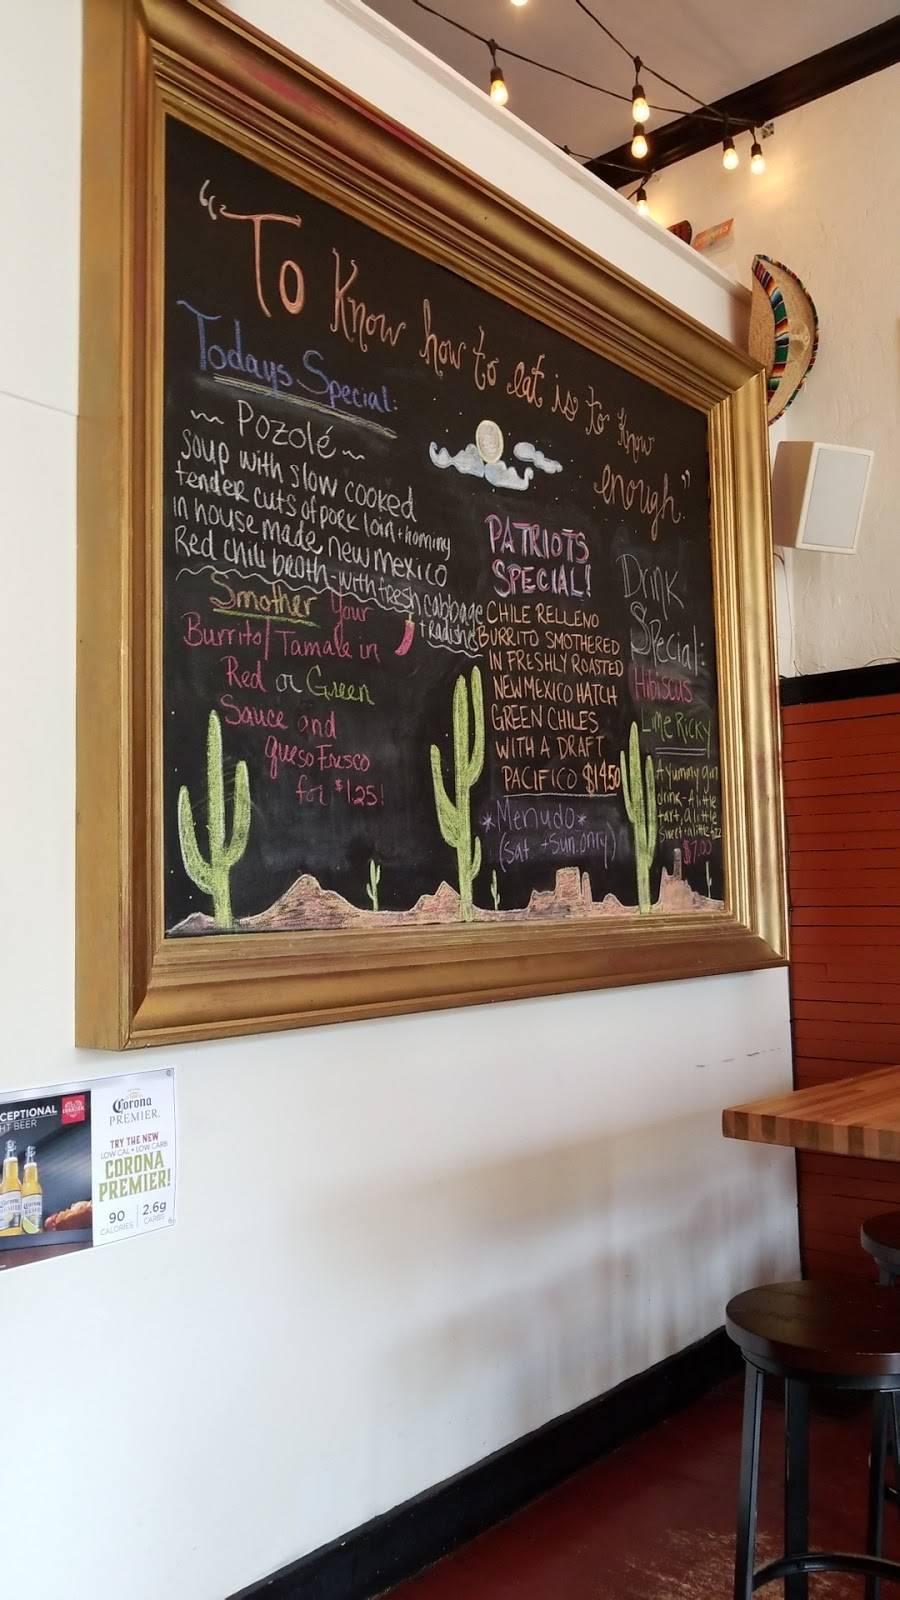 "To Know how to eat is to know
enough."
Todays Special:
~ Pozolé ~
soup with slow cooked
tender cuts of pork loin + hominy
in house made new mexico
Red chili broth - with fresh cabbage
+ radish
Smother Your
Burrito/Tamale in
Red or Green
Sauce and
queso Fresco
for $1.25!
PATRIOTS
SPECIAL!
CHILE RELLENO
BURRITO SMOTHERED
IN FRESHLY ROASTED
NEW MEXICO HATCH
GREEN CHILES
WITH A DRAFT
PACIFICO $14.50
*Menudo*
(sat. + sun. only)
Drink
Special:
Hibiscus
Lime Ricky
A yummy gin
drink - A little
tart, a little
sweet + a little fizz
$7.00
CEPTIONAL
HT BEER
Corona
PREMIER.
TRY THE NEW
LOW CAL • LOW CARB
CORONA
PREMIER!
90
CALORIES
2.6g
CARBS